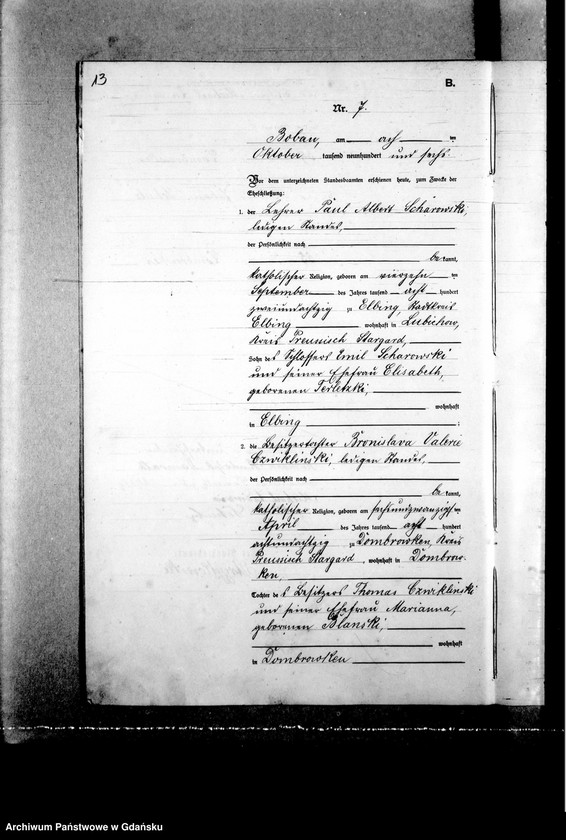 13
B.
Nr. 7.
Bobau, am ach ten
Oktober tausend neunhundert und sechs.
Vor dem unterzeichneten Standesbeamten erschienen heute, zum Zwecke der
Eheschließung:
1. der Lehrer Paul Albert Scharowski,
ledigen Standes,
der Persönlichkeit nach
be kannt,
katholischer Religion, geboren am vierzehn ten
September des Jahres tausend acht hundert
zweiundachtzig zu Elbing, Stadtkreis
Elbing wohnhaft in Lubichow,
Kreis Preussisch Stargard,
Sohn des Schlossers Emil Scharowski
und seiner Ehefrau Elisabeth,
geborenen Terletzki,
wohnhaft
in Elbing ;
2. die Besitzertochter Bronislava Valerie
Czwiklinski, ledigen Standes,
der Persönlichkeit nach
be kannt,
katholischer Religion, geboren am sechsundzwanzigsten
April des Jahres tausend acht hundert
achtundachtzig zu Dombrowken, Kreis
Preussisch Stargard, wohnhaft in Dombrow-
ken,
Tochter des Besitzers Thomas Czwiklinski
und seiner Ehefrau Marianna,
geborenen Blanski,
wohnhaft
in Dombrowken
Archiwum Państwowe w Gdańsku